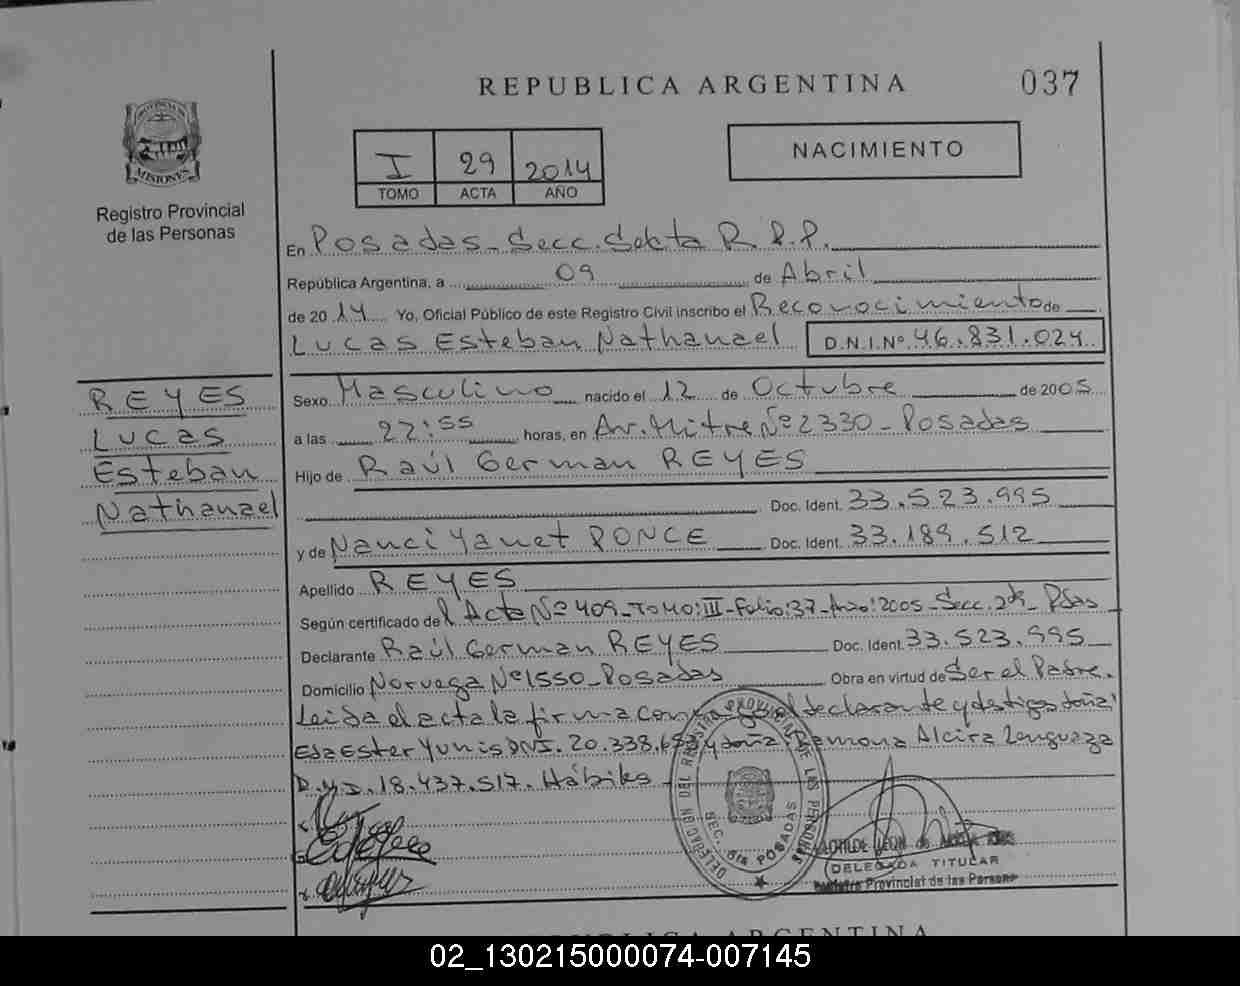 REPUBLICA ARGENTINA
037
PROVINCIA DE MISIONES
Registro Provincial
de las Personas
I 29 2014
TOMO ACTA AÑO
NACIMIENTO
En Posadas - Secc. Sexta R.P.P.
República Argentina, a 09 de Abril
de 2014 Yo, Oficial Público de este Registro Civil inscribo el Reconocimiento de
Lucas Esteban Nathanael D.N.I.Nº 46.831.024
REYES
Lucas
Esteban
Nathanael
Sexo Masculino nacido el 12 de Octubre de 2005
a las 22:55 horas, en Av. Mitre Nº 2330 - Posadas
Hijo de Raúl German REYES
Doc. Ident. 33.523.995
y de Nanci Yanet PONCE Doc. Ident. 33.189.512
Apellido REYES
Según certificado del Acta Nº 409 - Tomo: III - Folio: 37 - Año: 2005 - Secc. 2da - Pdas
Declarante Raúl German REYES Doc. Ident. 33.523.995
Domicilio Noruega Nº 1550 - Posadas Obra en virtud de Ser el Padre.
Leida el acta la firma conmigo el declarante y testigos doña
Eda Ester Yunis DNI. 20.338. y doña Ramona Alcira
D.N.I. 18.437.517. Hábiles
DELEGACION DEL REGISTRO PROVINCIAL DE LAS PERSONAS
SEC. 6ta POSADAS
CLOTILDE LEON de
DELEGADA TITULAR
Registro Provincial de las Personas
REPUBLICA ARGENTINA
02_130215000074-007145